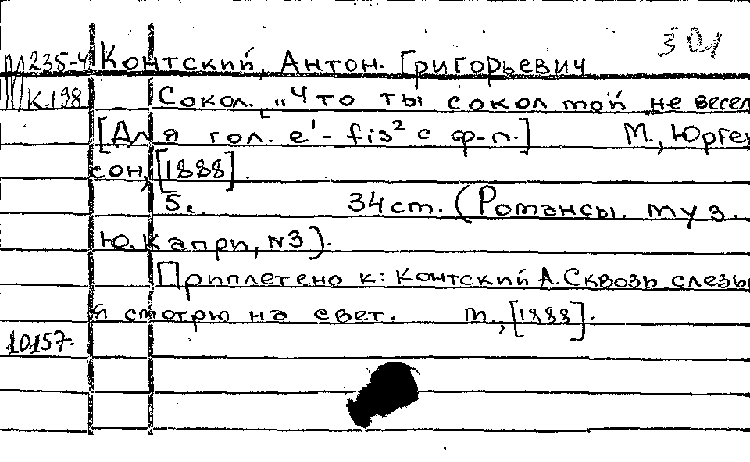 301
М 235-4 Контский, Антон. Григорьевич
К198 Сокол. „Что ты сокол мой не весел
[Для гол. e¹- fis² с ф-п.] М., Юрген
сон, [1888]
5с. 34 cm. (Романсы. муз.
Ю. Капри, N3).
Приплетено к: Контский А. Сквозь слезы
я смотрю на свет. М., [1888].
10157